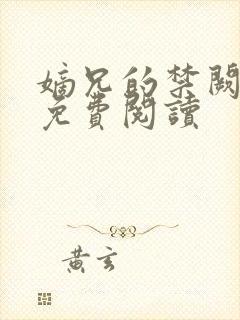 嫡兄的禁闕
免費閱讀
黃玄